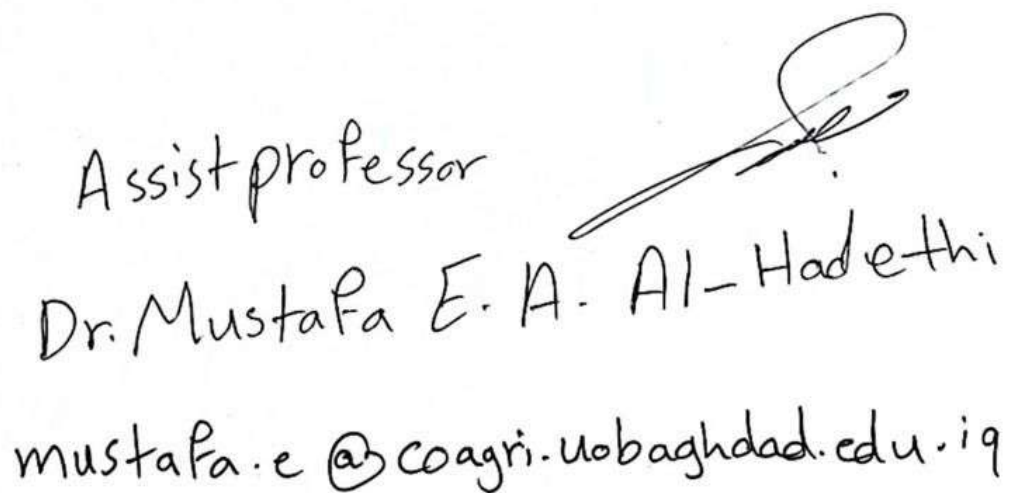 Assist professor
Dr. Mustafa E. A. Al-Hadethi
mustafa.e@coagri.uobaghdad.edu.iq